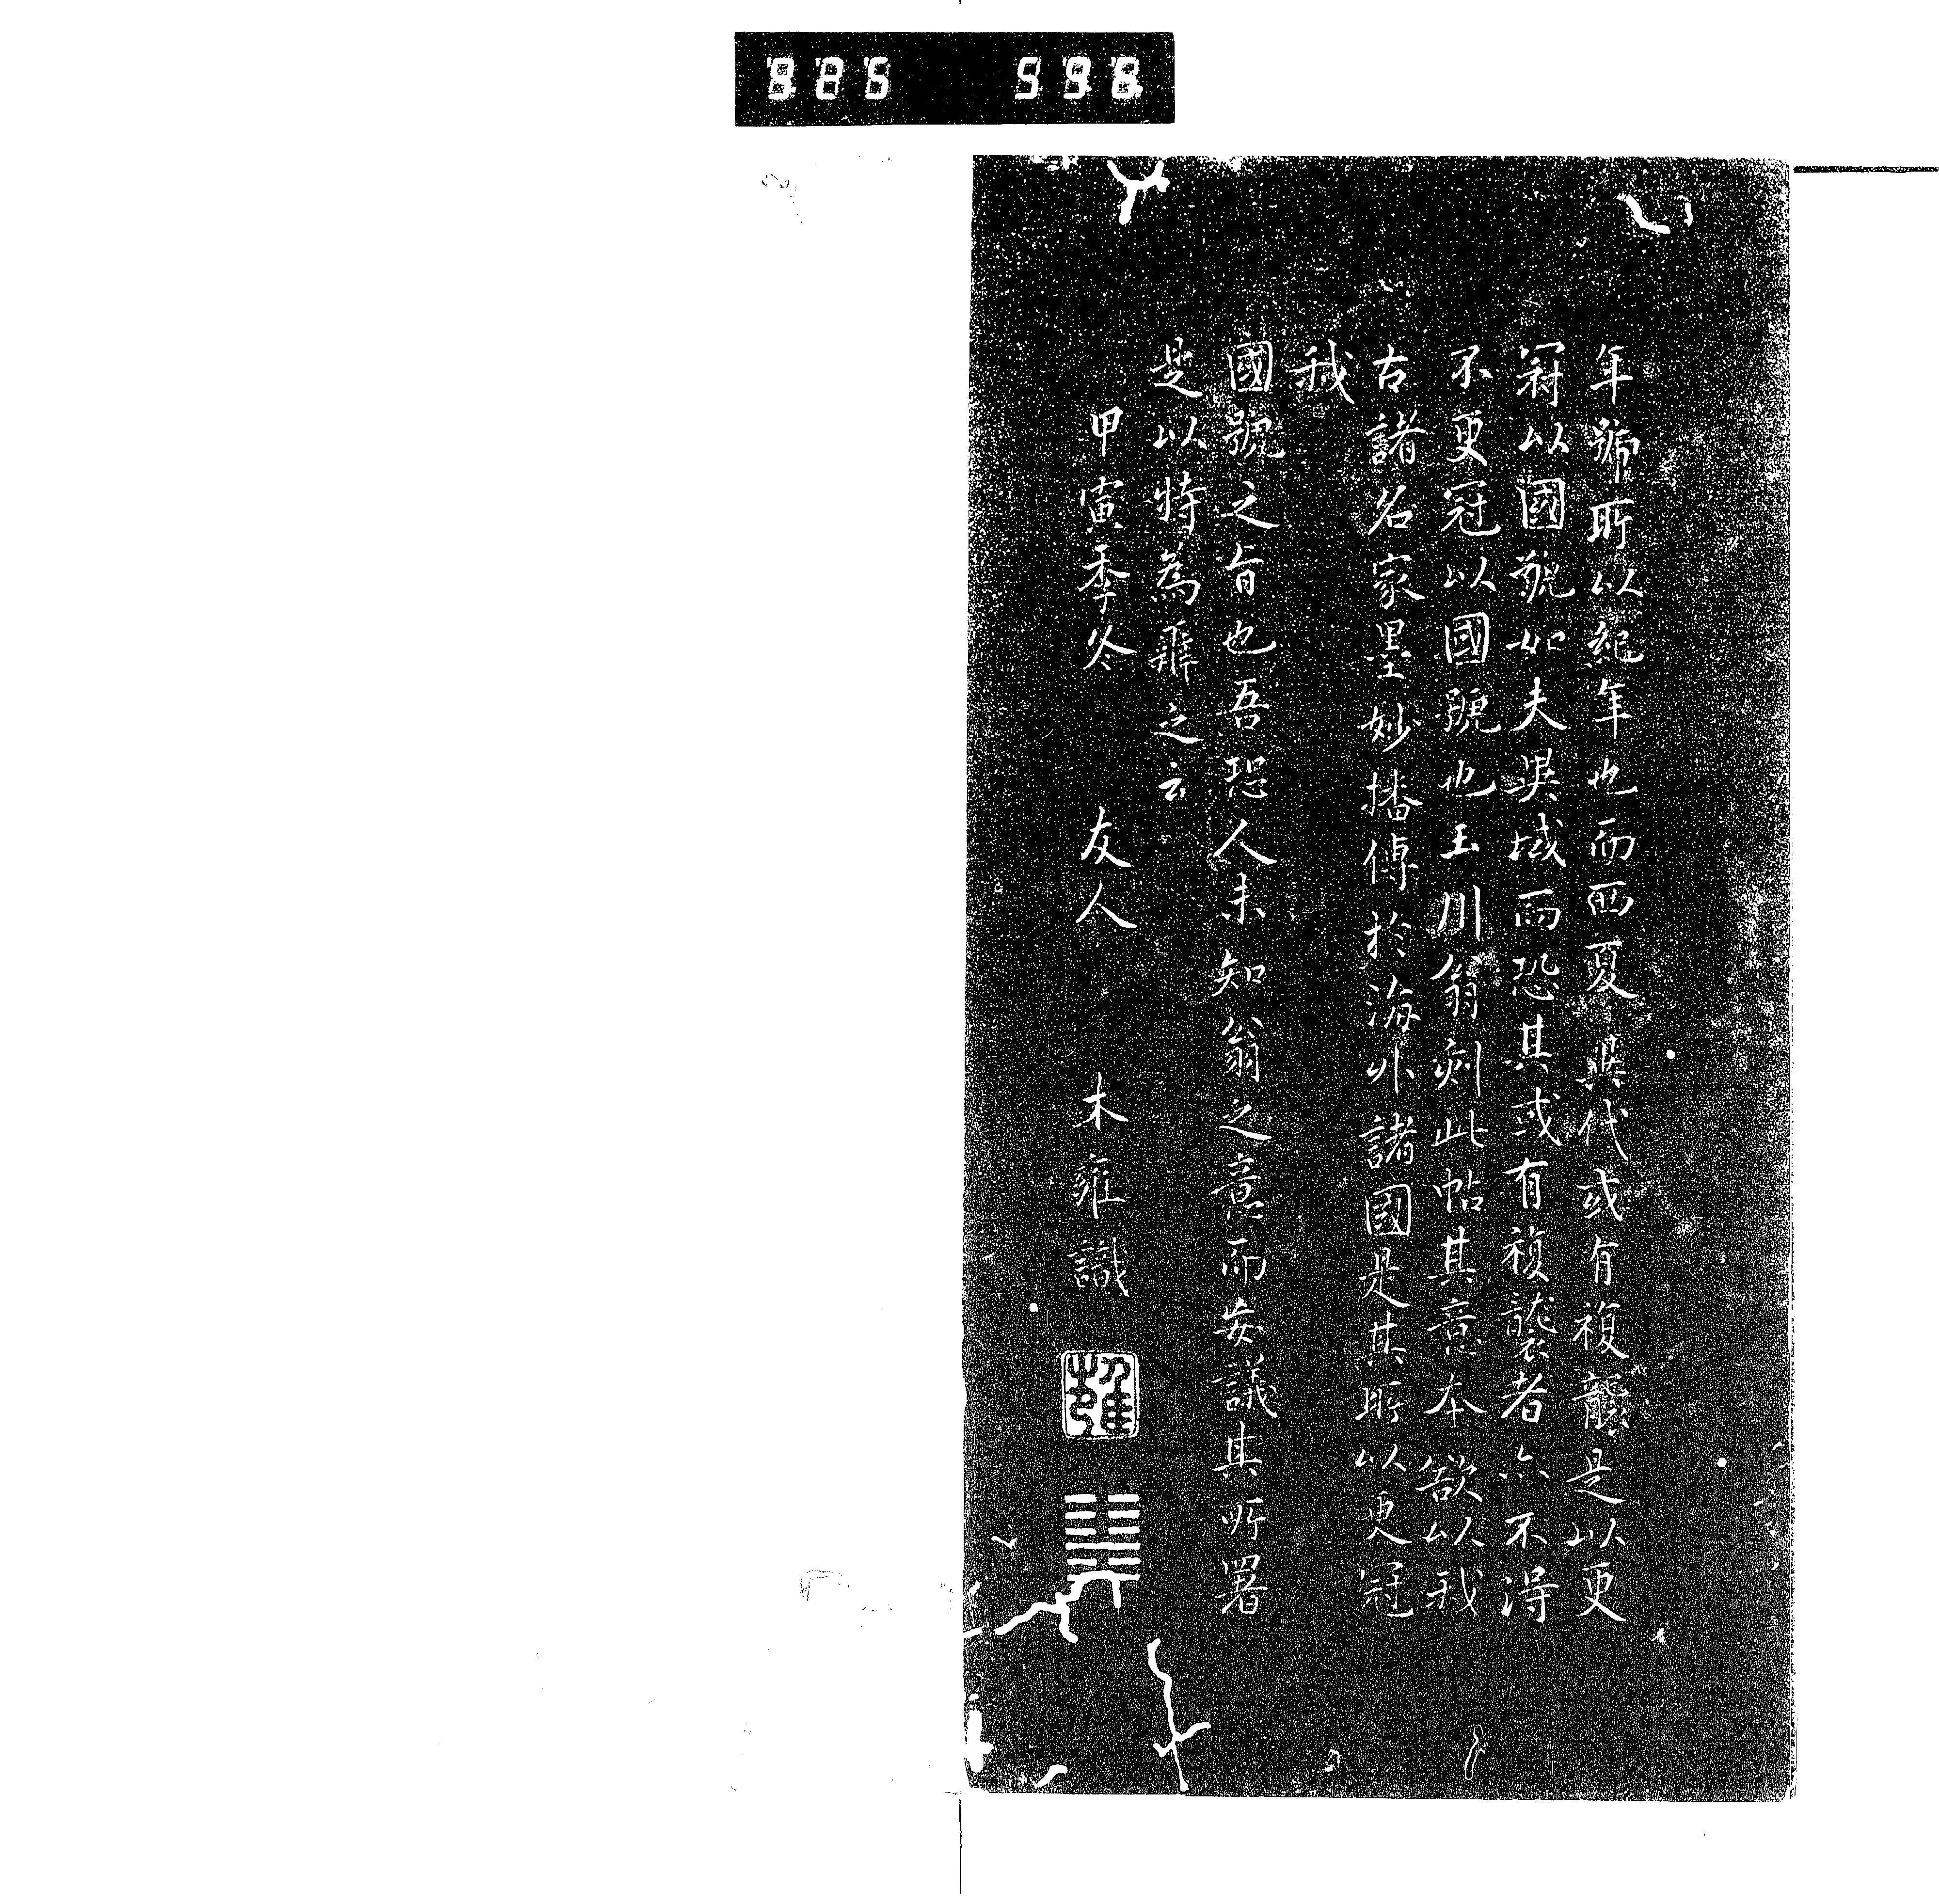 925 598
年號所以紀年也而西夏異代或有複襲是以更
冠以國號如夫異域而恐其或有複襲者亦不得
不更冠以國號也玉川翁刻此帖其意本欲以我
古諸名家墨妙播傳於海外諸國是其所以更冠
我
國號之旨也吾恐人未知翁之意而妄議其所署
是以特為辨之云
甲寅季冬 友人 木雍識
雍